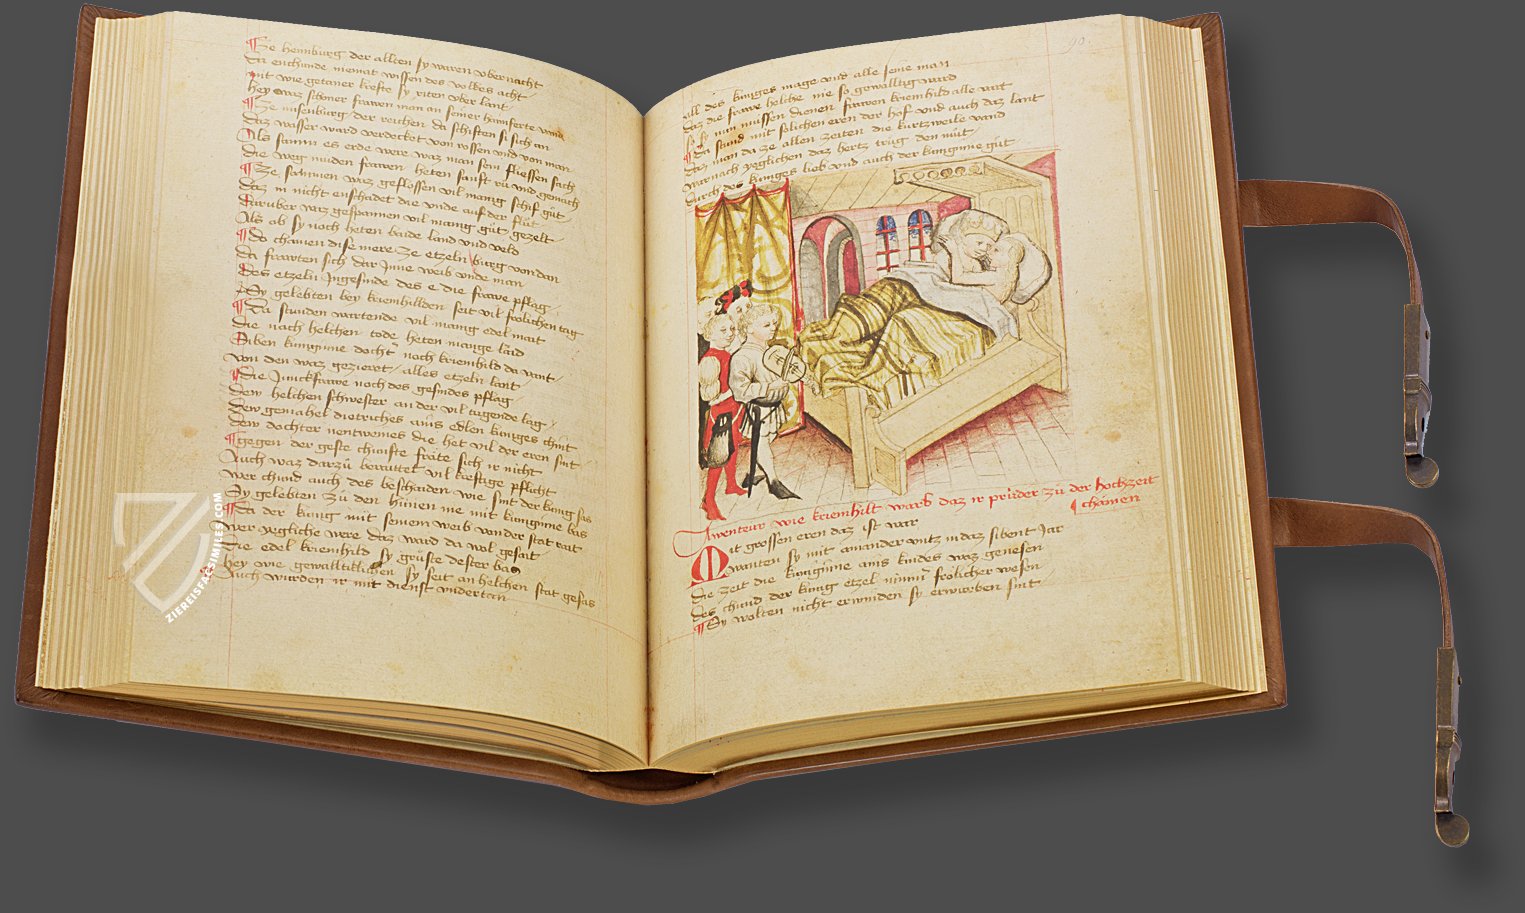 ¶Ze heimburg der allten sy waren vber nacht
da enchunde niemat wissen des volkes acht
mit wie getaner krefte sy riten vber lant
hey waz schoner frawen man an seiner haimferte vand
¶Ze misenburg der reichen da schiften si sich an
daz wasser ward verdecket von rossen vnd von man
Als samm es erde were waz man sein fliessen sach
die weg muden frawen heten sanft rů vnd gemach
¶Ze samnen waz geflossen vil manig schif gůt
daz in nicht enschadet die vnde auf der flůt
daruber waz gespannen vil manig gůt gezelt
Als ob sy noch heten baide land vnd veld
¶do chamen dise mere ze etzeln burg von dan
da frawten sich dar Inne weib vnde man
des etzeln Ingesinde des e die frawe pflag
Sy gelebten bey kriemhillden seit vil frolichen tag
¶Da stunden wartende vil manig edel mait
die nach helchen tode heten manige laid
Siben kunginne docht noch kriemhild da vant
von den waz gezieret alles etzeln lant
¶die Junckfrawe noch des gesindes pflag
dew helchen schwester an der vil tugende lag
dew gemahel dietriches ains edlen kuniges chint
dew dochter nentwemes die het vil der eren sint
¶gegen der geste chunfte fräte sich ir nicht
Auch waz darzů beraittet vil kreftige pflicht
wer chund auch des beschaiden wie sint der kunig sas
Sy gelebten zů den hunen nie mit kunginne bas
¶Da der kunig mit seinem weib von der stat rait
wer yegliche were daz ward da wol gesait
die edel kriemhild sy grůste dester bas
hey wie gewalltikleichen sy seit an helchen stat gesas
Auch wurden ir mit dienst vndertan
90.
all des kuniges mage vnd alle seine man
daz die frawe helche nie so gewalltig ward
so si nun mussen dienen frawen kriemhild alle vart
¶da stund mit solichen eren der hof vnd auch daz lant
daz man da ze allen zeiten die kurtzweile vand
war nach yeglichen daz hertz trůg den můt
durch des kuniges lieb vnd auch der kunginne gůt
Awenteur wie kriemhilt warb daz ir prüder zů der hochzeit
¶chämen
Mit grossen eren daz ist war
wanten sy mit ainander vntz in daz sibent Jar
die zeit die kunginne ains kindes waz genesen
des chund der kunig etzel nimmer frolicher wesen
¶Sy wolten nicht erwinden sy erwarben sint
ZIEREISFACSIMILES.COM